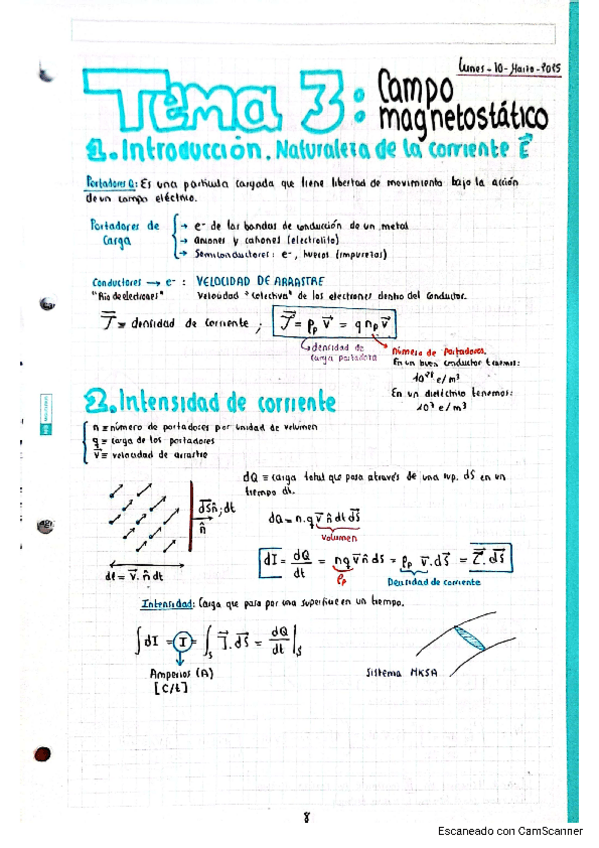 Lunes-10-Marzo-2025
Tema 3: Campo magnetostático
1. Introducción. Naturaleza de la corriente E⃗
Portadores Q: Es una partícula cargada que tiene libertad de movimiento bajo la acción
de un campo eléctrico.
Portadores de Carga
→ e⁻ de las bandas de conducción de un metal
→ aniones y cationes (electrolito)
→ Semiconductores: e⁻, huecos (impurezas)
Conductores → e⁻: VELOCIDAD DE ARRASTRE
"Río de electrones" Velocidad "colectiva" de los electrones dentro del conductor.
J⃗ ≡ densidad de corriente ; J⃗ = ρp v⃗ = q np v⃗
densidad de carga portadora
número de portadores.
En un buen conductor tenemos:
10²⁸ e/m³
En un dieléctrico tenemos:
10⁷ e/m³
2. Intensidad de corriente
n ≡ número de portadores por unidad de volumen
q ≡ carga de los portadores
v⃗ ≡ velocidad de arrastre
dQ ≡ carga total que pasa através de una sup. dS en un
tiempo dt.
dS⃗n̂; dt
n̂
dQ = n.q v⃗ n̂ dt dS⃗
Volumen
dl = v⃗. n̂ dt
dI = dQ/dt = nq v⃗ n̂ dS = ρp v⃗. dS⃗ = J⃗. dS⃗
ρp
Densidad de corriente
Intensidad: Carga que pasa por una superficie en un tiempo.
∫dI = I = ∫s J⃗. dS⃗ = dQ/dt |s
Amperios (A)
[C/t]
Sistema MKSA
8
Escaneado con CamScanner